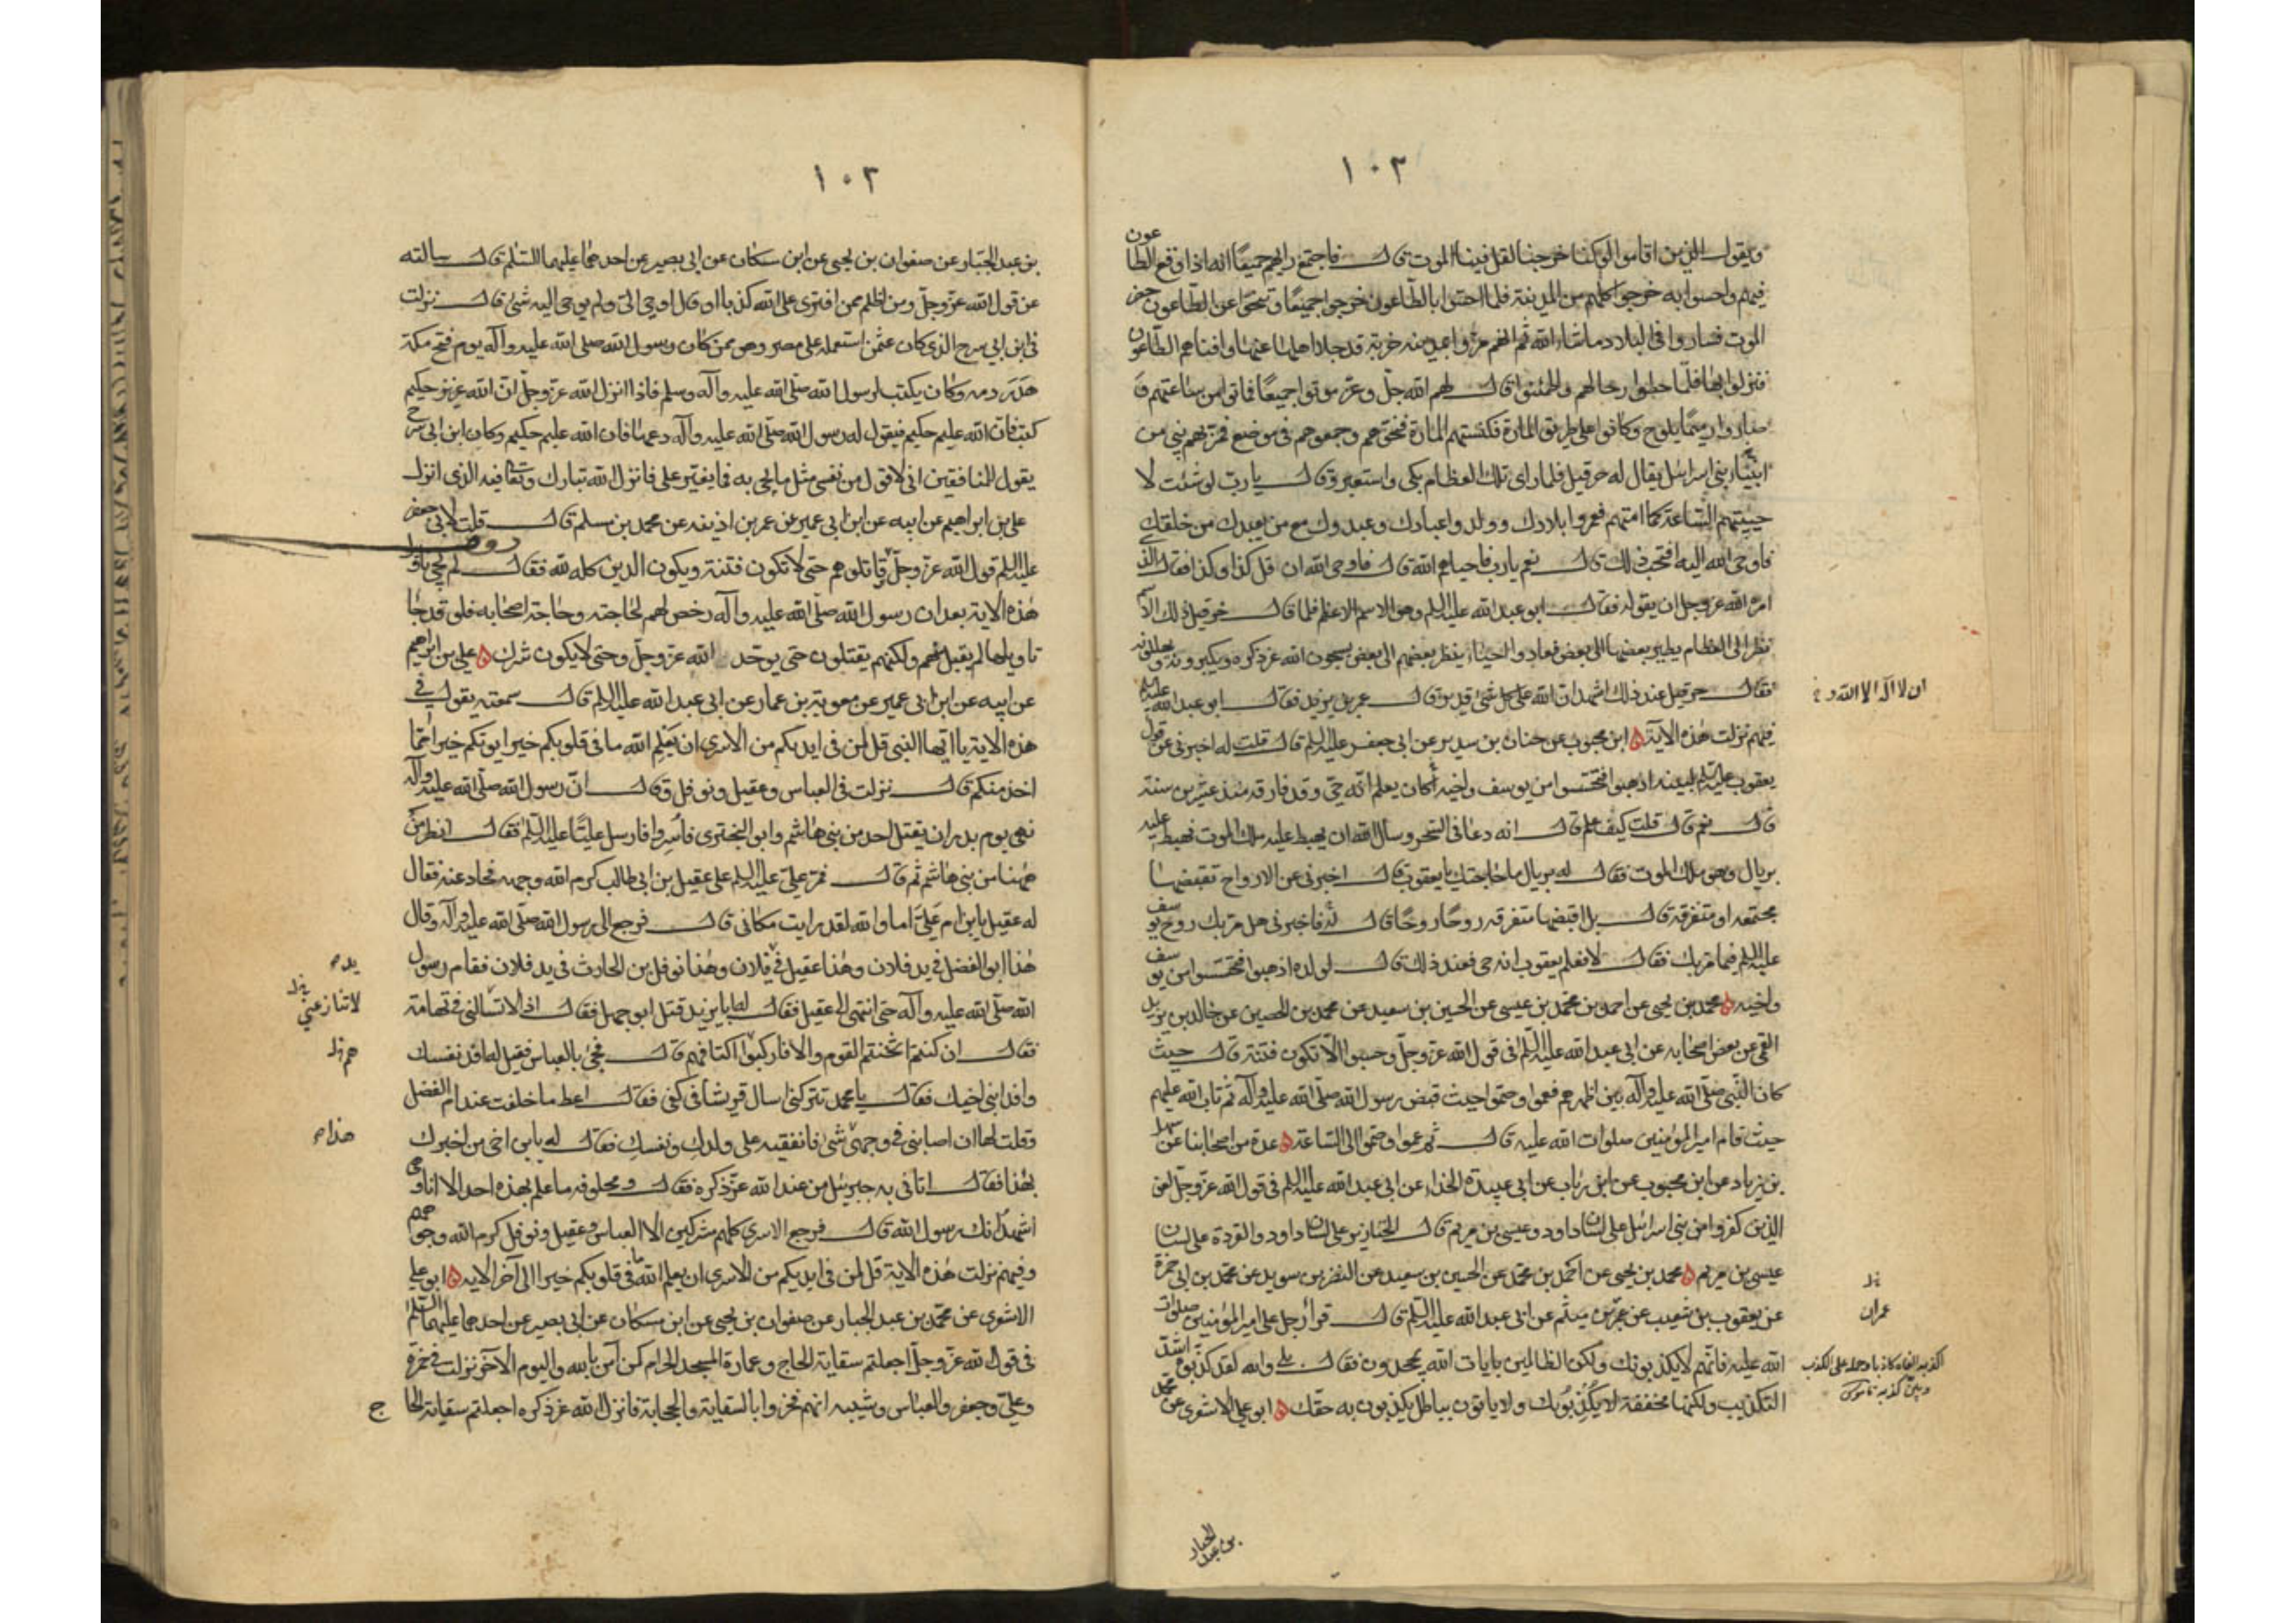 ١٠٢
ويقول الذين اقاموا لو كنا خرجنا لقل فينا الموت قال فاجتمع رايهم جميعًا انه اذا وقع الطاعون
فيهم واحسوا به خرجوا كلهم من المدينة فلما احسوا بالطاعون خرجوا جميعًا وتنحوا عن الطاعون حذر
الموت فساروا في البلاد ما شاء الله ثم انهم مروا بمدينة خربة قد جلا اهلها عنها وافناهم الطاعون
فنزلوا بها فلما حطوا رحالهم واطمئنوا قال لهم الله جل وعز موتوا جميعًا فماتوا من ساعتهم و
صاروا رميمًا يلوح وكانوا على طريق المارة فكنستهم المارة فنحوهم وجمعوهم في موضع فمر بهم نبي من
انبياء بني اسرائيل يقال له حزقيل فلما راى تلك العظام بكى واستعبر وقال يا رب لو شئت لا
حييتهم الساعة كما امتهم فعمروا بلادك وولدوا عبادك وعبدوك مع من يعبدك من خلقك
فاوحى الله اليه افتحب ذلك قال نعم يا رب فاحياهم الله قال فاوحى الله ان قل كذا وكذا فقال الذي
امره الله عز وجل ان يقوله فقال ابو عبد الله عليه السلم وهو الاسم الاعظم فلما قال حزقيل ذلك الاسم
نظر الى العظام يطير بعضها الى بعض فعادوا احياء ينظر بعضهم الى بعض يسبحون الله عز ذكره ويكبرونه ويهللونه
فقال حزقيل عند ذلك اشهد ان الله على كل شئ قدير وقال عمر بن يزيد فقال ابو عبد الله عليه السلم
ان لا اله الا الله و
فيهم نزلت هذه الآية ابن محبوب عن حنان بن سدير عن ابي جعفر عليه السلم قال قلت له اخبرني عن قول
يعقوب عليه السلم لبنيه اذهبوا فتحسسوا من يوسف واخيه أكان يعلم انه حي وقد فارقه منذ عشرين سنة
قال نعم قال قلت كيف علم قال انه دعا في السحر وسال الله ان يهبط عليه ملك الموت فهبط عليه
بريال وهو ملك الموت فقال له بريال ما حاجتك يا يعقوب قال اخبرني عن الارواح تقبضها
مجتمعه او متفرقة قال بل اقبضها متفرقه روحًا روحًا قال له فاخبرني هل مر بك روح يوسف
عليه السلم فيما مر بك فقال لا فعلم يعقوب انه حي فعند ذلك قال لولده اذهبوا فتحسسوا من يوسف
واخيه محمد بن يحيى عن احمد بن محمد بن عيسى عن الحسين بن سعيد عن محمد بن الحصين عن خالد بن يزيد
القمي عن بعض اصحابه عن ابي عبد الله عليه السلم في قول الله عز وجل وحسبوا الا تكون فتنة قال حيث
كان النبي صلى الله عليه وآله بين اظهرهم فعموا وصموا حيث قبض رسول الله صلى الله عليه وآله ثم تاب الله عليهم
حيث قام امير المؤمنين صلوات الله عليه قال ثم عموا وصموا الى الساعة عدة من اصحابنا عن سهل
بن زياد عن ابن محبوب عن ابن رئاب عن ابي عبيدة الحذاء عن ابي عبد الله عليه السلم في قول الله عز وجل لعن
الذين كفروا من بني اسرائيل على لسان داود وعيسى بن مريم قال الخنازير على لسان داود والقردة على لسان
عيسى بن مريم محمد بن يحيى عن احمد بن محمد عن الحسين بن سعيد عن النضر بن سويد عن محمد بن ابي حمزة
عن يعقوب بن شعيب عن عمران بن ميثم عن ابي عبد الله عليه السلم قال قرأ رجل على امير المؤمنين صلوات
عمران
الله عليه فانهم لا يكذبونك ولكن الظالمين بايات الله يجحدون فقال بلى والله لقد كذبوه اشد
التكذيب ولكنها مخففة لا يُكْذِبُونك ولا ياتون بباطل يكذبون به حقك ابو علي الاشعري عن محمد
بن عبد الجبار
١٠٣
بن عبد الجبار عن صفوان بن يحيى عن ابن مسكان عن ابي بصير عن احدهما عليهما السلم قال سالته
عن قول الله عز وجل ومن اظلم ممن افترى على الله كذبا او قال اوحي الي ولم يوحى اليه شئ قال نزلت
في ابن ابي سرح الذي كان عثمن استعمله على مصر وهو ممن كان رسول الله صلى الله عليه وآله يوم فتح مكة
هدر دمه وكان يكتب لرسول الله صلى الله عليه وآله وسلم فاذا انزل الله عز وجل ان الله عزيز حكيم
كتب فان الله عليم حكيم فيقول له رسول الله صلى الله عليه وآله دعها فان الله عليم حكيم وكان ابن ابي سرح
يقول للمنافقين اني لاقول من نفسي مثل ما يجئ به فما يغير علي فانزل الله تبارك وتعالى فيه الذي انزل
علي بن ابراهيم عن ابيه عن ابن ابي عمير عن عمر بن اذينه عن محمد بن مسلم قال قلت لابي جعفر
عليه السلم قول الله عز وجل وقاتلوهم حتى لا تكون فتنة ويكون الدين كله لله فقال لم يجئ تاويل
هذه الآية بعد ان رسول الله صلى الله عليه وآله رخص لهم لحاجته وحاجة اصحابه فلو قد جا
تاويلها لم يقبل منهم ولكنهم يقتلون حتى يوحد الله عز وجل وحتى لا يكون شرك علي بن ابراهيم
عن ابيه عن ابن ابي عمير عن معوية بن عمار عن ابي عبد الله عليه السلم قال سمعته يقول في
هذه الاية يا ايها النبي قل لمن في ايديكم من الاسرى ان يعلم الله ما في قلوبكم خيرا يوتكم خيرا مما
اخذ منكم قال نزلت في العباس وعقيل ونوفل وقال ان رسول الله صلى الله عليه وآله
نهى يوم بدر ان يقتل احد من بني هاشم وابو البختري فأسروا فارسل عليًا عليه السلم فقال انظر من
ههنا من بني هاشم ثم قال فمر علي عليه السلم على عقيل بن ابي طالب كرم الله وجهه فحاد عنه فقال
له عقيل يا بن ام علي اما والله لقد رايت مكاني قال فرجع الى رسول الله صلى الله عليه وآله وقال
هذا ابو الفضل في يد فلان وهذا عقيل في فلان وهذا نوفل بن الحارث في يد فلان فقام رسول
يد
الله صلى الله عليه وآله حتى انتهى الى عقيل فقال له يا با يزيد قتل ابو جهل فقال اذا لا تسالني في تهامة
لا تنازعني
فقال ان كنتم اثخنتم القوم والا فاركبوا اكتافهم قال فجئ بالعباس فقيل له افد نفسك
وافد ابني اخيك فقال يا محمد تتركني اسال قريشا في كفي فقال اعط ما خلفت عند ام الفضل
وقلت لها ان اصابني في وجهي شئ فانفقيه على ولدك ونفسك فقال له يا بن اخي من اخبرك
هذا
بهذا فقال اتاني به جبرئيل من عند الله عز ذكره فقال ومحلوفه ما علم بهذه احد الا انا وهي
اشهد انك رسول الله قال فرجع الاسرى كلهم مشركين الا العباس وعقيل ونوفل كرم الله وجوههم
وفيهم نزلت هذه الاية قل لمن في ايديكم من الاسرى ان يعلم الله ما في قلوبكم خيرا الى آخر الايه ابو علي
الاشعري عن محمد بن عبد الجبار عن صفوان بن يحيى عن ابن مسكان عن ابي بصير عن احدهما عليهما السلم
في قول الله عز وجل اجعلتم سقاية الحاج وعمارة المسجد الحرام كمن آمن بالله واليوم الآخر نزلت في حمزة
وعلي وجعفر والعباس وشيبه انهم فخروا بالسقاية والحجابة فانزل الله عز ذكره اجعلتم سقاية الحا
ج